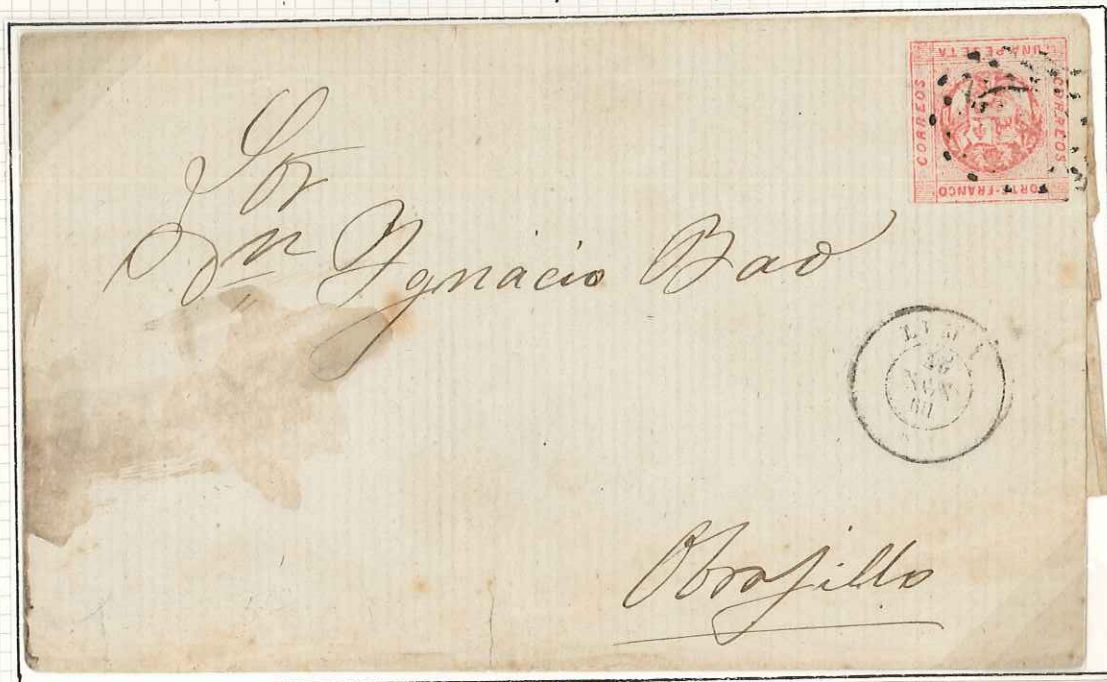 UNA PESETA
CORREOS
CORREOS
PORTE FRANCO
Sor
Dn Ygnacio Bao
LIMA
NOV
60
Obrajillo